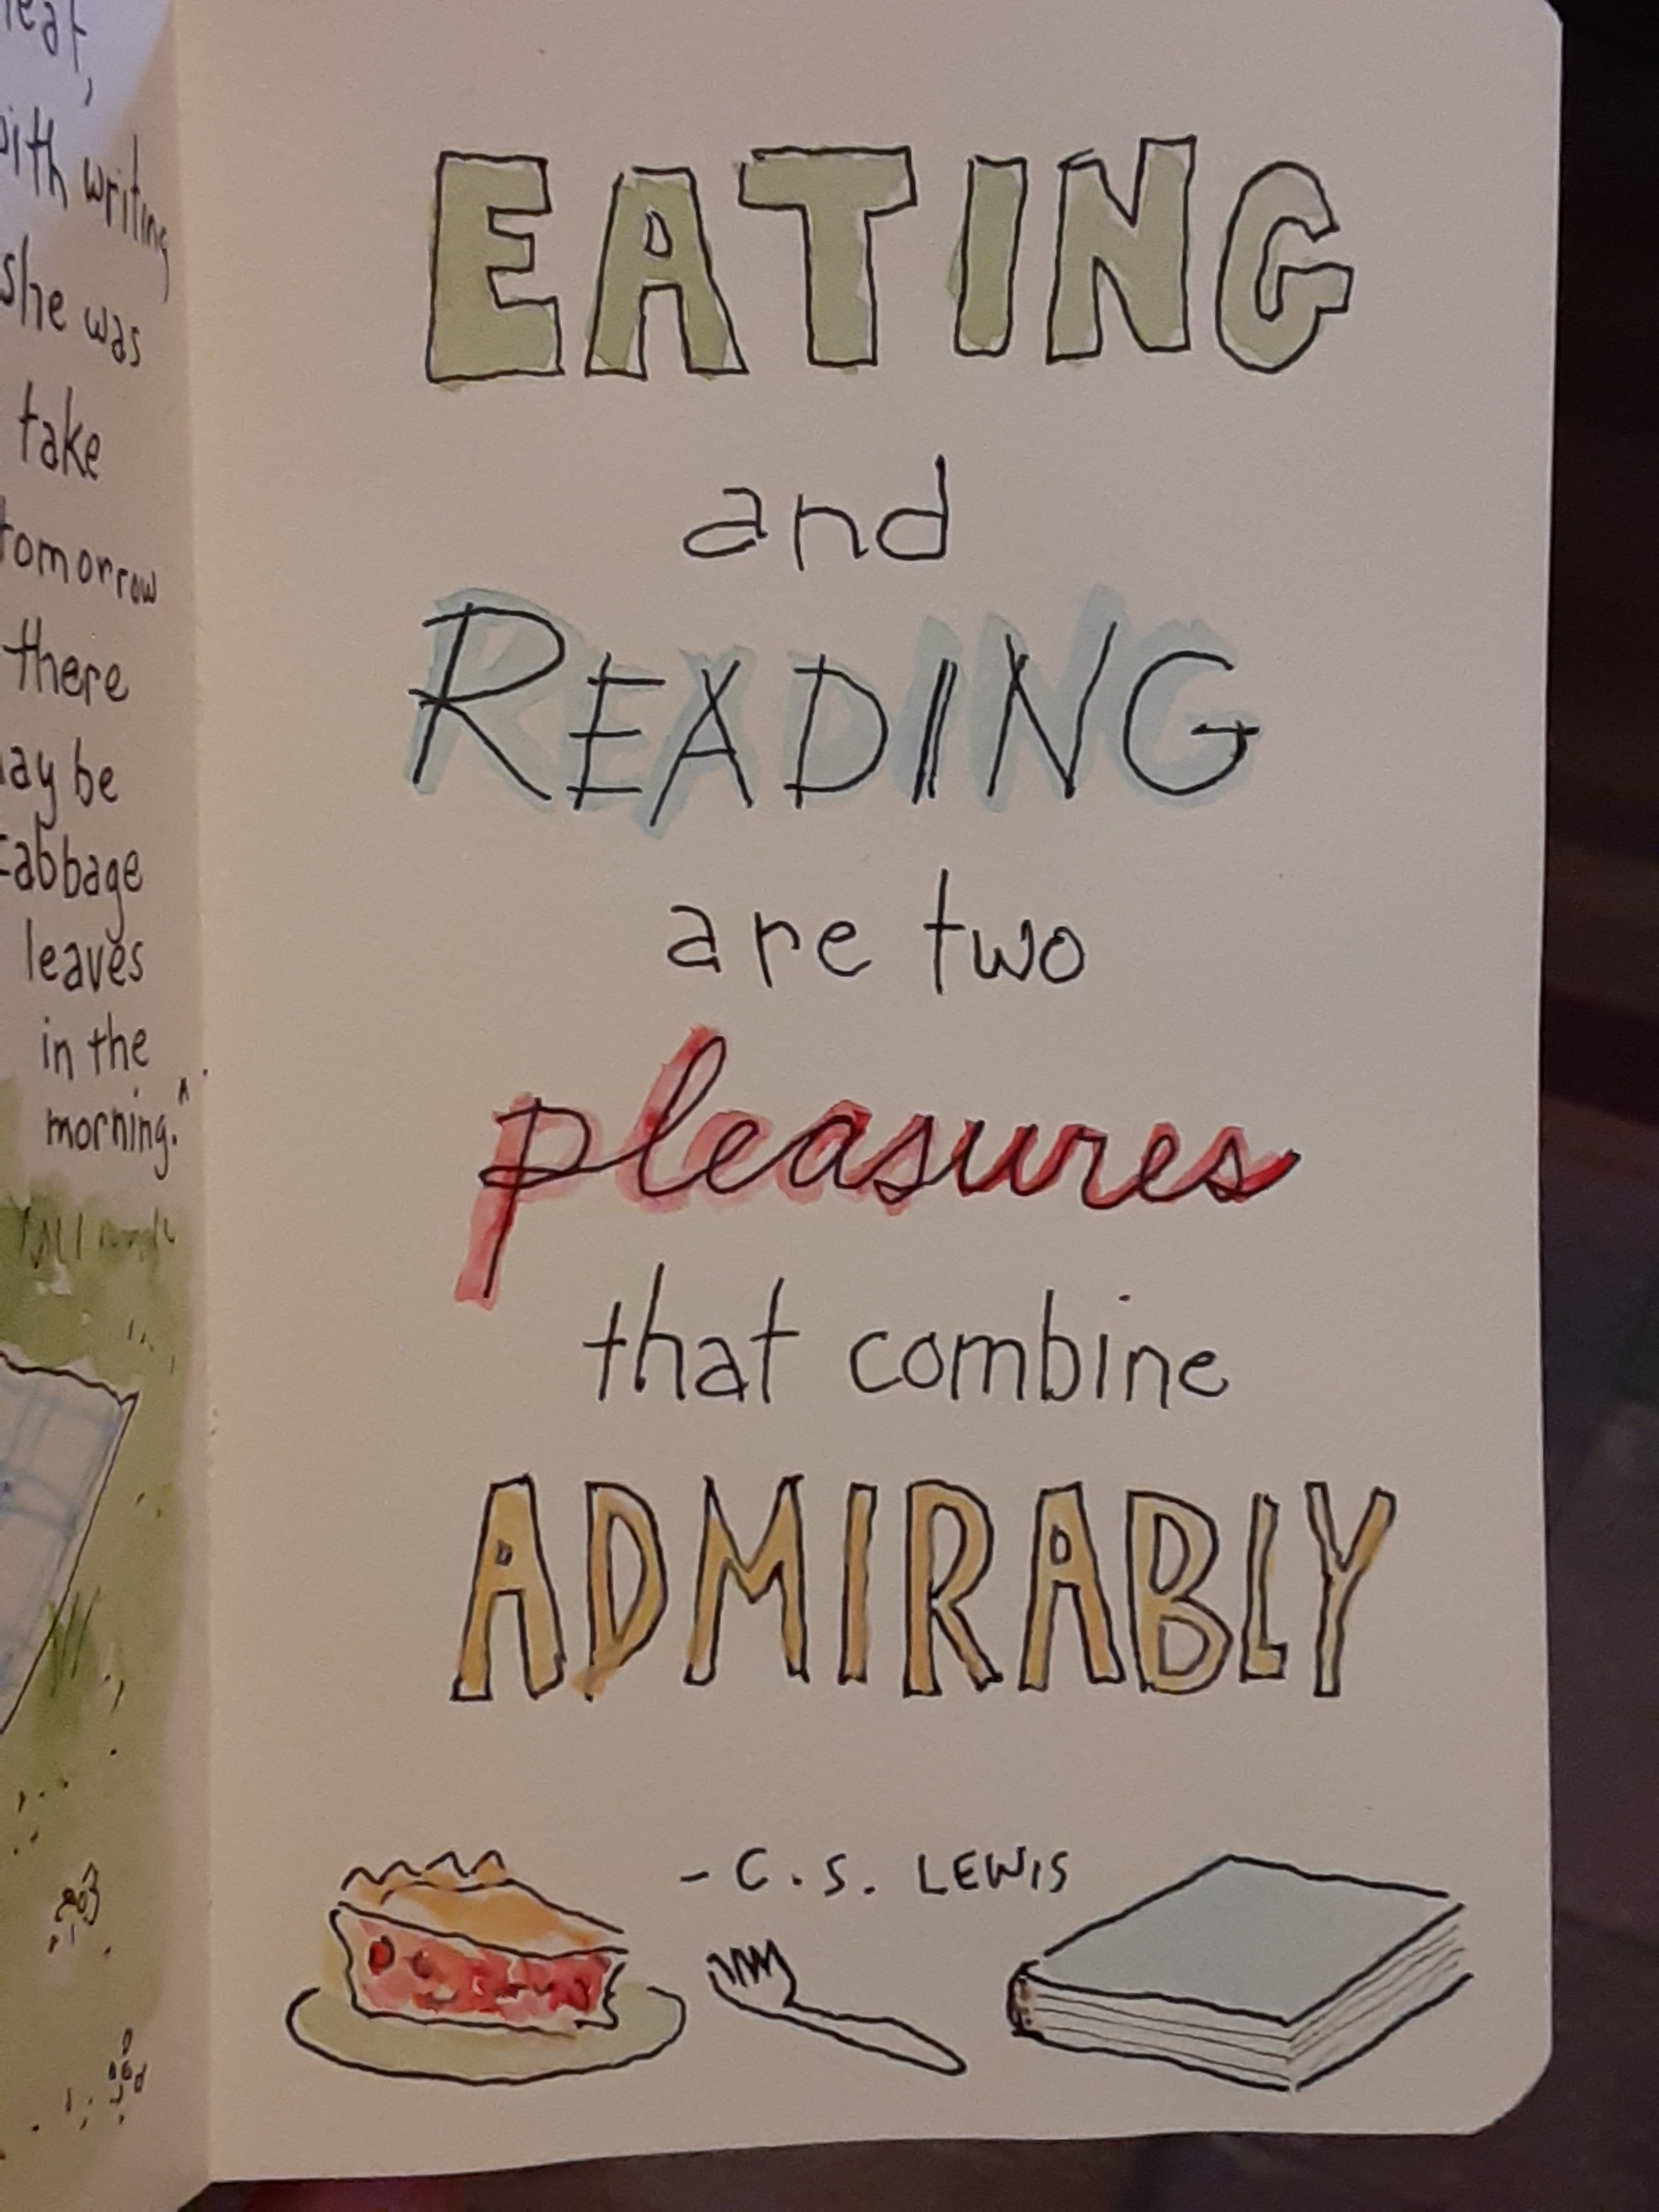 with writing
she was
take
tomorrow
there
be
cabbage
leaves
in the
morning."
EATING
and
READING
are two
pleasures
that combine
ADMIRABLY
- C.S. LEWIS